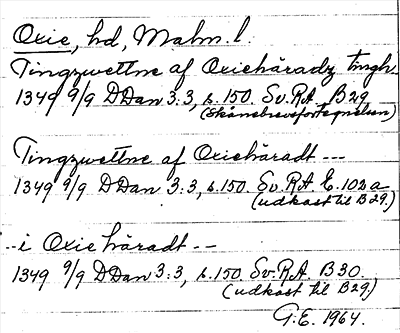 Oxie, hd, Malm. l.
Tingzwettne af Oxiehäradz tingh
1349 9/9 DDan 3:3, s. 150. Sv. RA. B29
(Skånebrevsfortegnelsen)
Tingzwettne af Oxiehäradt ---
1349 9/9 DDan 3:3, s. 150. Sv. RA E. 102a
(udkast til B29.)
--i Oxie häradt --
1349 9/9 DDan 3:3, s. 150. Sv. R.A. B30
(udkast til B29)
G.E. 1964.